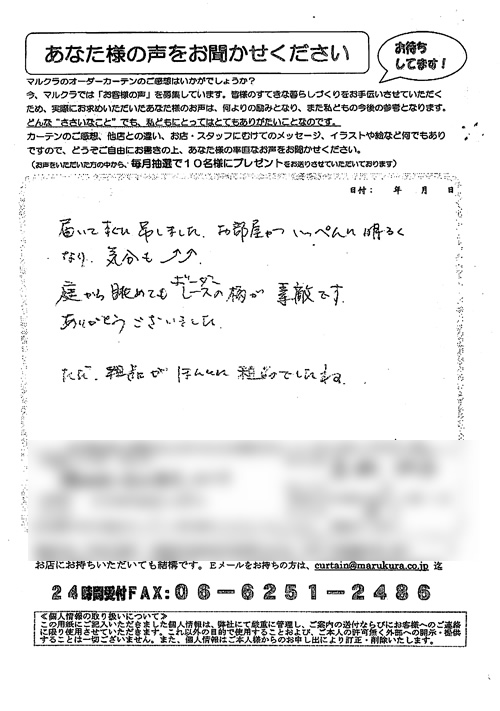 あなた様の声をお聞かせください
お待ち
してます！
マルクラのオーダーカーテンのご感想はいかがでしょうか？
今、マルクラでは「お客様の声」を募集しています。皆様のすてきな暮らしづくりをお手伝いさせていただく
ため、実際にお求めいただいたあなた様のお声は、何よりの励みとなり、また私どもの今後の参考となります。
どんな“ささいなこと”でも、私どもにとってはとてもありがたいことなのです。
カーテンのご感想、他店との違い、お店・スタッフにむけてのメッセージ、イラストや絵など何でもあり
ですので、どうぞご自由にお書きの上、あなた様の率直なお声をお聞かせください。
（お声をいただいた方の中から、毎月抽選で１０名様にプレゼントをお送りさせていただいております）
日付：　年　月　日
届いてすぐに 吊しました。お部屋がいっぺんに 明るく
なり、気分も↗↗。
庭から眺めてもボーダー
レースの柄が 素敵です。
ありがとうございました。
ただ、粗品が ほんとに 粗品でしたね。
お店にお持ちいただいても結構です。Ｅメールをお持ちの方は、curtain@marukura.co.jp 迄
２４時間受付ＦＡＸ：０６－６２５１－２４８６
≪個人情報の取り扱いについて≫
この用紙にご記入いただきました個人情報は、弊社にて厳重に管理し、ご案内の送付ならびにお客様へのご連絡
に限り使用させていただきます。これ以外の目的で使用することおよび、ご本人の許可無く外部への開示・提供
することは一切ございません。また、個人情報はご本人様からのお申し出により訂正・削除いたします。